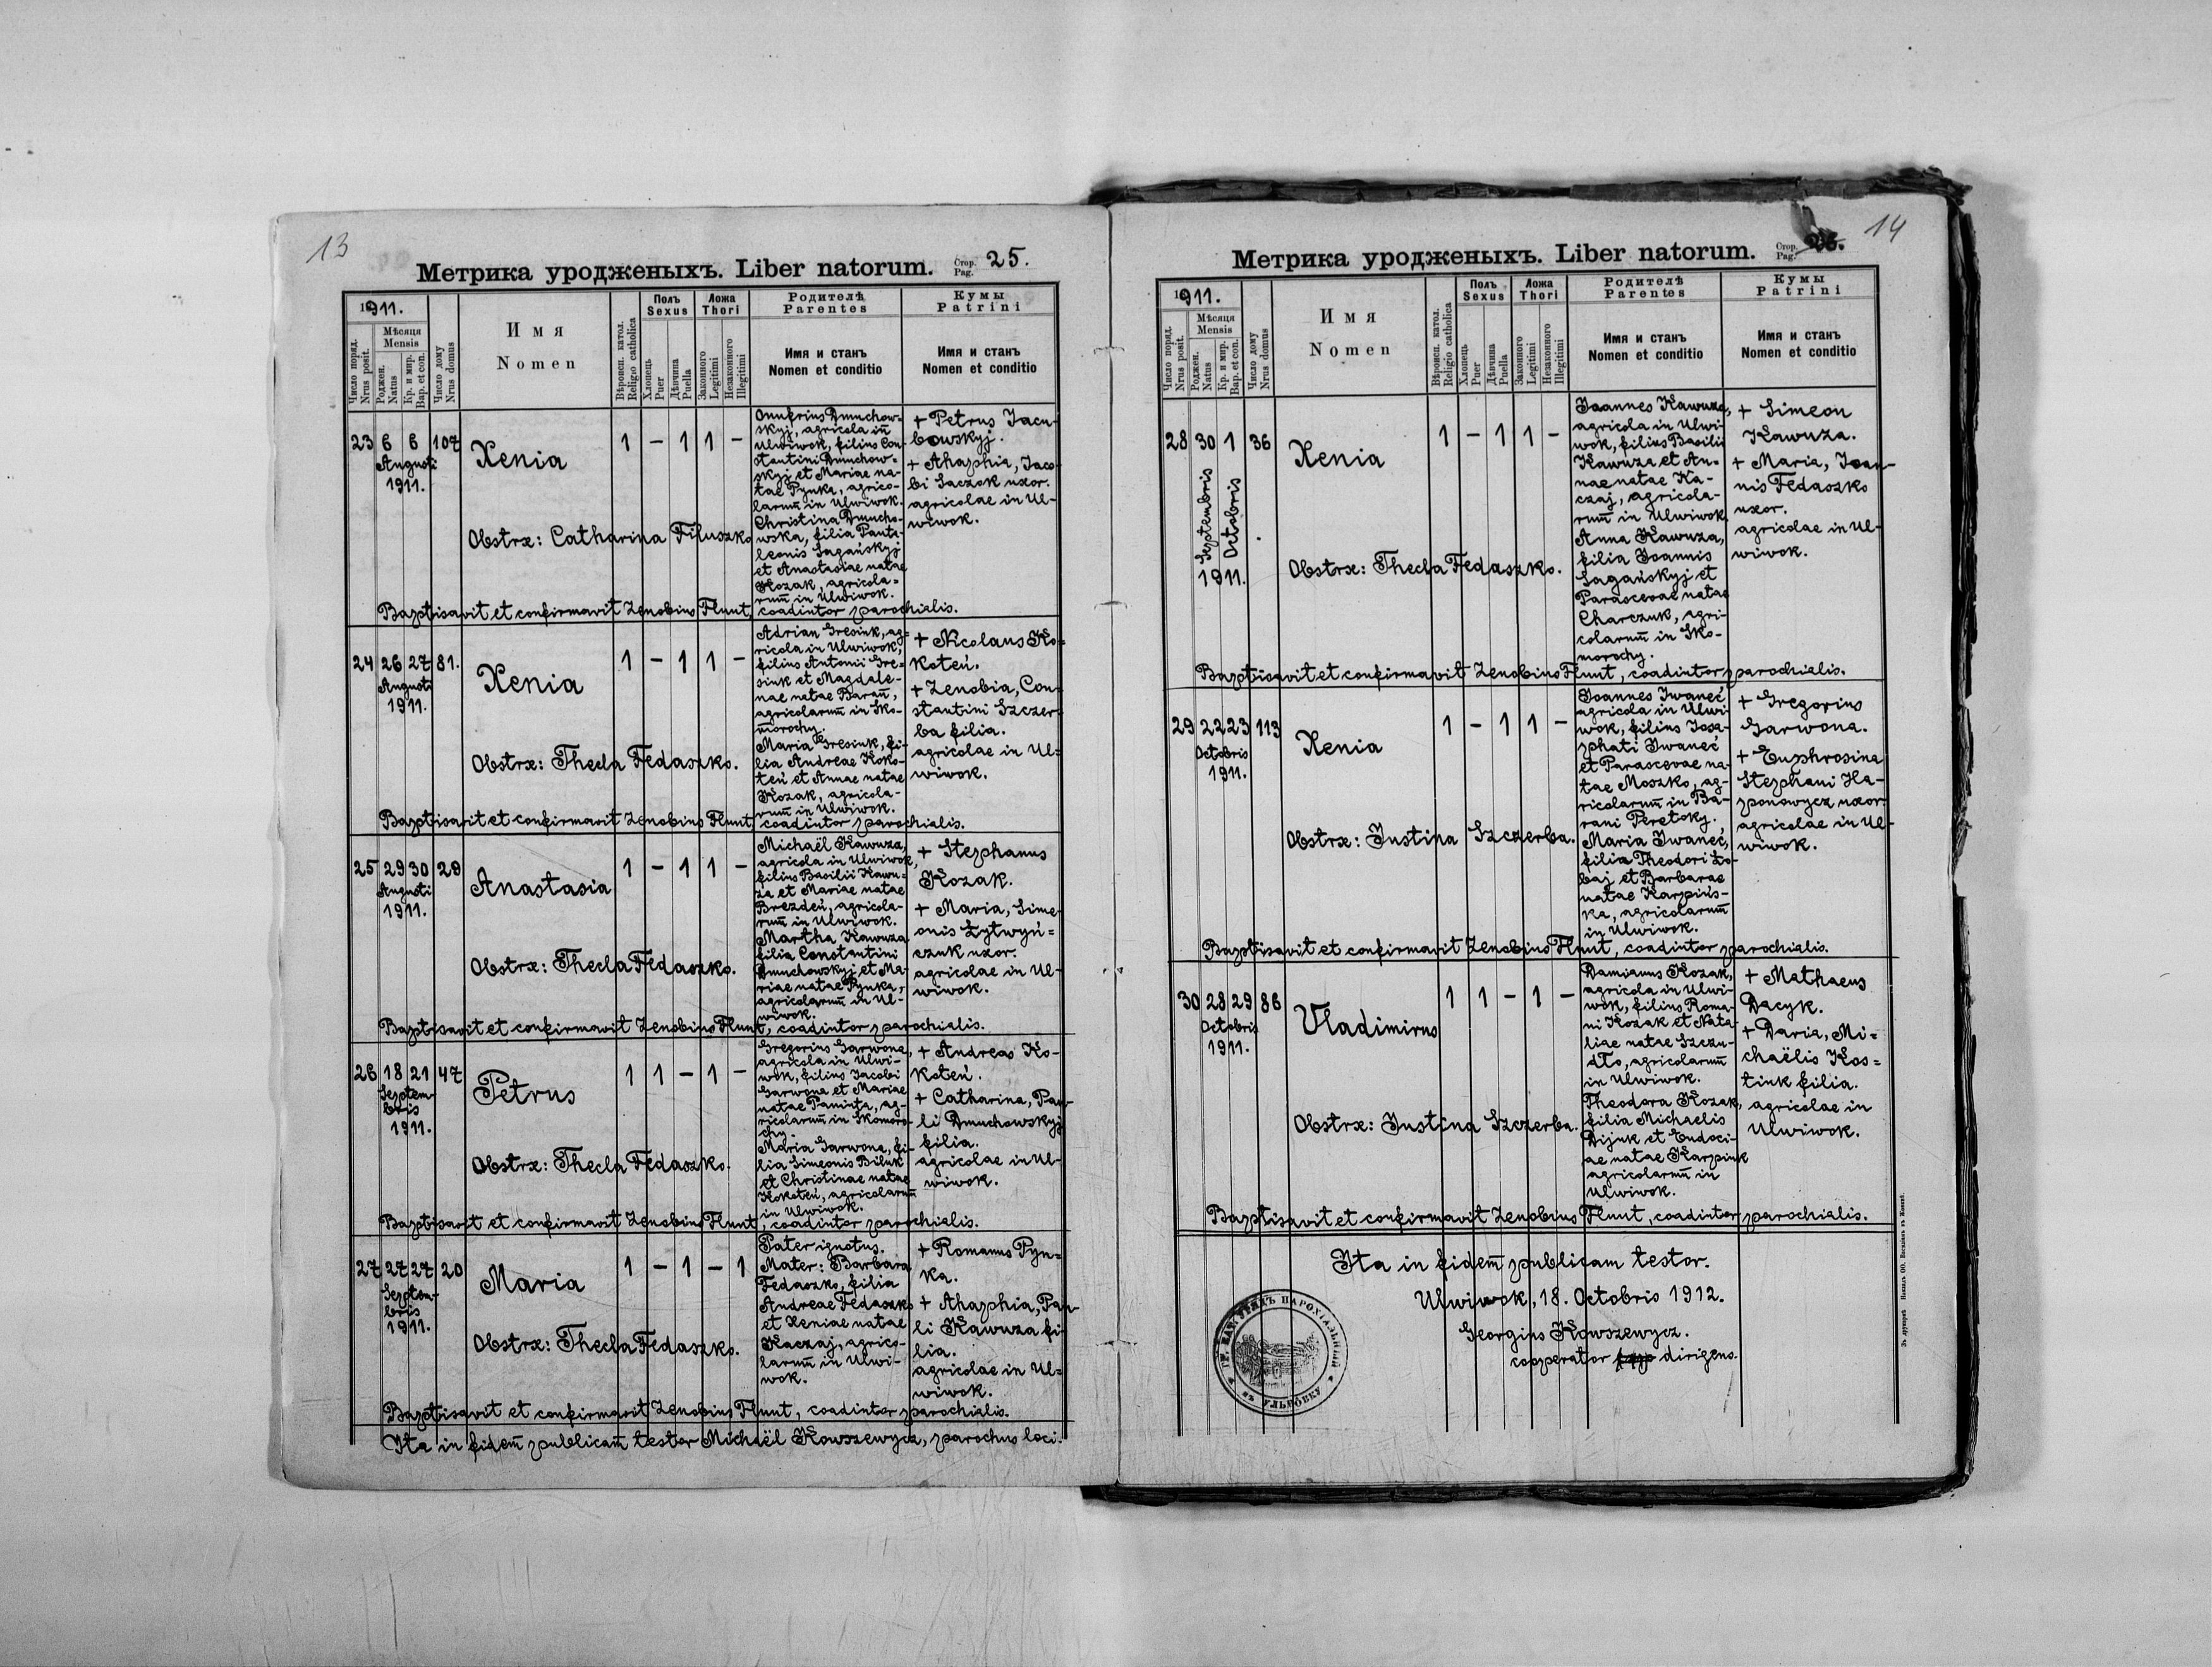 13
Метрика уродженыхъ. Liber natorum.
Стор.
Pag.
25.
1911.
Число поряд.
Nrus posit.
Мѣсяця
Mensis
Роджен.
Natus
Кр. и мир.
Bap. et con.
Число дому
Nrus domus
Имя
Nomen
Вѣроисп. катол.
Religio catholica
Полъ
Sexus
Хлопець
Puer
Дѣвчина
Puella
Ложа
Thori
Законного
Legitimi
Незаконного
Illegitimi
Родителѣ
Parentes
Имя и станъ
Nomen et conditio
Кумы
Patrini
Имя и станъ
Nomen et conditio
23 6 6 107
Augusti
1911.
Xenia
1 – 1 1 –
Onufrius Dmuchow=
skyj, agricola in
Ulwiwok, filius Con-
stantini Dmuchow=
skyj et Mariae na-
tae Pynka, agrico-
larum in Ulwiwok.
Christina Dmucho-
wska, filia Panta-
leonis Sagańskyj
et Anastasiae natae
Kozak, agricola=
rum in Ulwiwok.
+ Petrus Jacu-
bowskyj.
+ Ahaphia, Jaco-
bi Saczok uxor.
agricolae in Ul-
wiwok.
Obstrx: Catharina Filuszko
Baptisavit et confirmavit Zenobius Flunt, coadiutor parochialis.
24 26 27 81.
Augusti
1911.
Xenia
1 – 1 1 –
Adrian Gresiuk, ag=
ricola in Ulwiwok,
filius Antonii Gre=
siuk et Magdale-
nae natae Baran,
agricolarum in Sko-
morochy.
Maria Gresiuk, fi-
lia Andreae Koko-
teń et Annae natae
Kozak, agricola-
rum in Ulwiwok.
+ Nicolaus Ko=
koteń.
+ Zenobia, Con-
stantini Szczer-
ba filia.
agricolae in Ul=
wiwok.
Obstrx: Thecla Fedaszko.
Baptisavit et confirmavit Zenobius Flunt, coadiutor parochialis.
25 29 30 28
Augusti
1911.
Anastasia
1 – 1 1 –
Michaël Kawuza,
agricola in Ulwiwok,
filius Basilii Kawu-
za et Mariae natae
Brezdeń, agricola-
rum in Ulwiwok.
Martha Kawuza
filia Constantini
Dmuchowskyj et Ma-
riae natae Pynka,
agricolarum in Ul-
wiwok.
+ Stephanus
Kozak.
+ Maria, Sime-
onis Łytwyń=
czuk uxor.
agricolae in Ul-
wiwok.
Obstrx: Thecla Fedaszko.
Baptisavit et confirmavit Zenobius Flunt, coadiutor parochialis.
26 18 21 47
Septem-
bris
1911.
Petrus
1 1 – 1 –
Gregorius Garwona,
agricola in Ulwi-
wok, filius Jacobi
Garwona et Mariae
natae Paninta, ag-
ricolarum in Skomoro-
chy.
Maria Garwona, fi-
lia Simeonis Biluk
et Christinae natae
Kokoteń, agricolarum
in Ulwiwok.
+ Andreas Ko-
koteń.
+ Catharina, Pau-
li Dmuchowskyj
filia.
agricolae in Ul-
wiwok.
Obstrx: Thecla Fedaszko.
Baptisavit et confirmavit Zenobius Flunt, coadiutor parochialis.
27 27 27 20
Septem-
bris
1911.
Maria
1 – 1 – 1
Pater ignotus.
Mater: Barbara
Fedaszko, filia
Andreae Fedaszko
et Xeniae natae
Kaczaj, agrico-
larum in Ulwi-
wok.
+ Romanus Pyn=
ka.
+ Ahaphia, Pau-
li Kawuza fi-
lia.
agricolae in Ul=
wiwok.
Obstrx: Thecla Fedaszko.
Baptisavit et confirmavit Zenobius Flunt, coadiutor parochialis.
Ita in fidem publicam testor Michaël Kowszewycz, parochus loci.
14
Метрика уродженыхъ. Liber natorum.
Стор.
Pag.
26.
1911.
Число поряд.
Nrus posit.
Мѣсяця
Mensis
Роджен.
Natus
Кр. и мир.
Bap. et con.
Число дому
Nrus domus
Имя
Nomen
Вѣроисп. катол.
Religio catholica
Полъ
Sexus
Хлопець
Puer
Дѣвчина
Puella
Ложа
Thori
Законного
Legitimi
Незаконного
Illegitimi
Родителѣ
Parentes
Имя и станъ
Nomen et conditio
Кумы
Patrini
Имя и станъ
Nomen et conditio
28 30 1 36
Septembris
Octobris
1911.
Xenia
1 – 1 1 –
Joannes Kawuza,
agricola in Ulwi-
wok, filius Basilii
Kawuza et An=
nae natae Ka-
czaj, agricola-
rum in Ulwiwok.
Anna Kawuza,
filia Joannis
Sagańskyj et
Parascevae natae
Charczuk, agri-
colarum in Sko-
morochy.
+ Simeon
Kawuza.
+ Maria, Joan-
nis Fedaszko
uxor.
agricolae in Ul-
wiwok.
Obstrx: Thecla Fedaszko.
Baptisavit et confirmavit Zenobius Flunt, coadiutor parochialis.
29 22 23 113
Octobris
1911.
Xenia
1 – 1 1 –
Joannes Iwaneć
agricola in Ulwi-
wok, filius Josa-
phati Iwaneć
et Parascevae na-
tae Moszko, ag-
ricolarum in Ba-
rani Peretoky.
Maria Iwaneć,
filia Theodori Ło-
baj et Barbarae
natae Karpińs-
ka, agricolarum
in Ulwiwok.
+ Gregorius
Garwona.
+ Euphrosina
Stephani Ha-
ponowycz uxor.
agricolae in Ul-
wiwok.
Obstrx: Justina Szczerba.
Baptisavit et confirmavit Zenobius Flunt, coadiutor parochialis.
30 28 29 86
Octobris
1911.
Vladimirus
1 1 – 1 –
Damianus Kozak,
agricola in Ulwi-
wok, filius Roma-
ni Kozak et Nata-
liae natae Szczu-
dło, agricolarum
in Ulwiwok.
Theodora Kozak,
filia Michaelis
Dijuk et Eudoci-
ae natae Karpiuk
agricolarum in
Ulwiwok.
+ Mathaeus
Dacyk.
+ Daria, Mi=
chaëlis Kos=
tiuk filia.
agricolae in
Ulwiwok.
Obstrx: Justina Szczerba.
Baptisavit et confirmavit Zenobius Flunt, coadiutor parochialis.
Ita in fidem publicam testor.
Ulwiwok, 18. Octobris 1912.
Georgius Kowszewycz.
cooperator dirigens.
ГР. КАТ. УРЯДЪ ПАРОХІАЛЬНЫЙ